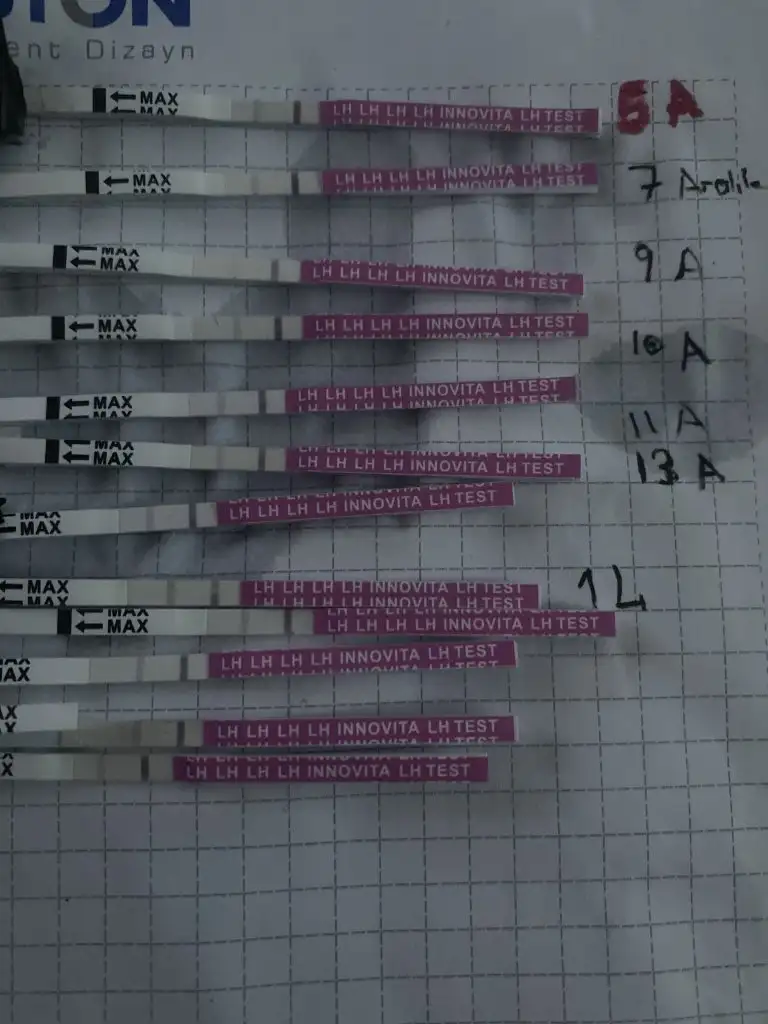 ent Dizayn
MAX
LH LH LH LH INNOVITA LH TEST
5 A
MAX
LH LH LH LH INNOVITA LH TEST
7 Aralık
MAX
MAX
LH LH LH LH INNOVITA LH TEST
9 A
MAX
LH LH LH LH INNOVITA LH TEST
10 A
MAX
LH LH LH LH INNOVITA LH TEST
11 A
MAX
MAX
LH LH LH LH INNOVITA LH TEST
13 A
MAX
MAX
LH LH LH LH INNOVITA LH TEST
MAX
MAX
LH LH LH LH INNOVITA LH TEST
1L
MAX
MAX
LH LH LH LH INNOVITA LH TEST
AX
LH LH LH LH INNOVITA LH TEST
X
LH LH LH LH INNOVITA LH TEST
X
LH LH LH LH INNOVITA LH TEST